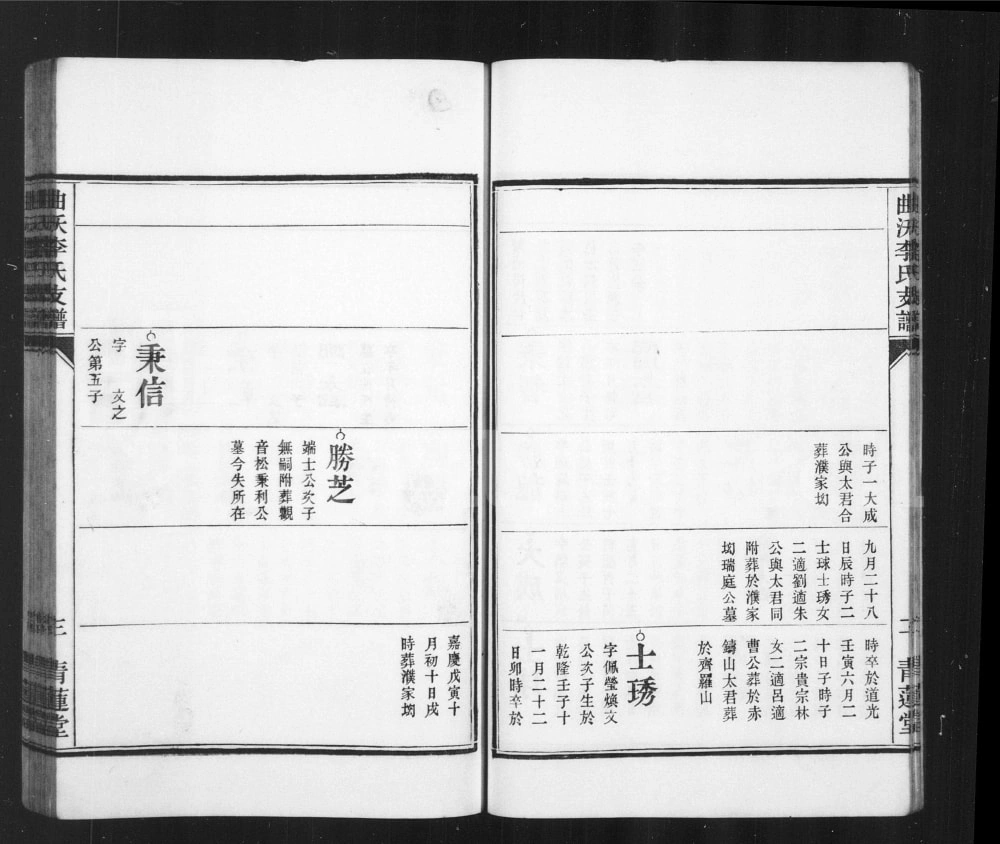 曲沃李氏支譜
二
青蓮堂
時子一大成
公與太君合
葬濮家㘭
九月二十八
日辰時子二
士球士琇女
二適劉適朱
公與太君同
附葬於濮家
㘭瑞庭公墓
時卒於道光
壬寅六月二
十日子時子
二宗貴宗林
女二適呂適
曹公葬於赤
鑄山太君葬
於齊羅山
士琇
字佩瑩煥文
公次子生於
乾隆壬子十
一月二十二
日卯時卒於
嘉慶戊寅十
月初十日戌
時葬濮家㘭
勝芝
端士公次子
無嗣附葬觀
音松秉利公
墓今失所在
秉信
字 文之
公第五子
曲沃李氏支譜
三
青蓮堂